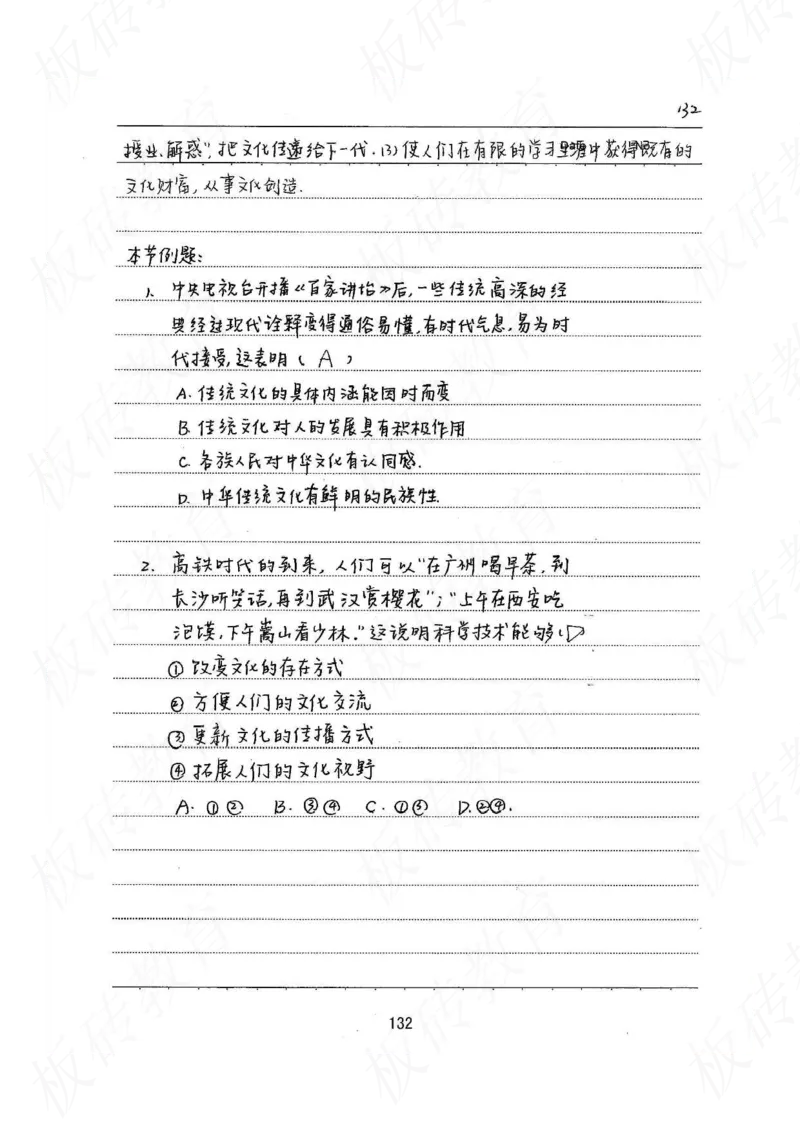 132
授业、解惑",把文化传递给下一代.(3)使人们在有限的学习生涯中获得既有的
文化财富,从事文化创造.
本节例题:
1、中央电视台开播《百家讲坛》后,一些传统高深的经
典经过现代诠释变得通俗易懂,有时代气息,易为时
代接受,这表明(A)
A.传统文化的具体内涵能因时而变
B.传统文化对人的发展具有积极作用
C.各族人民对中华文化有认同感.
D.中华传统文化有鲜明的民族性.
2.高铁时代的到来,人们可以"在广州喝早茶,到
长沙听笑话,再到武汉赏樱花";"上午在西安吃
泡馍,下午嵩山看少林."这说明科学技术能够(D)
①改变文化的存在方式
②方便人们的文化交流
③更新文化的传播方式
④拓展人们的文化视野
A.①② B.③④ C.①③ D.②④.
132
板砖教育